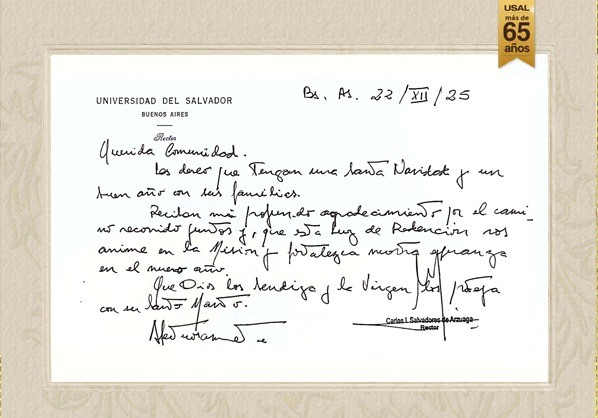 USAL
más de
65
años
UNIVERSIDAD DEL SALVADOR
BUENOS AIRES
Rector
Bs. As. 22/XII/25
Querida Comunidad.
Les deseo que Tengan una Santa Navidad y un
buen año con sus familias.
Reciban mi profundo agradecimiento por el cami-
no recorrido juntos y, que esta Luz de Redención nos
anime en la Misión y fortalezca nuestra esperanza
en el nuevo año.
Que Dios los bendiga y la Virgen los proteja
con su Santo Manto.
Afectuosamente
Carlos I. Salvadores de Arzuaga
Rector